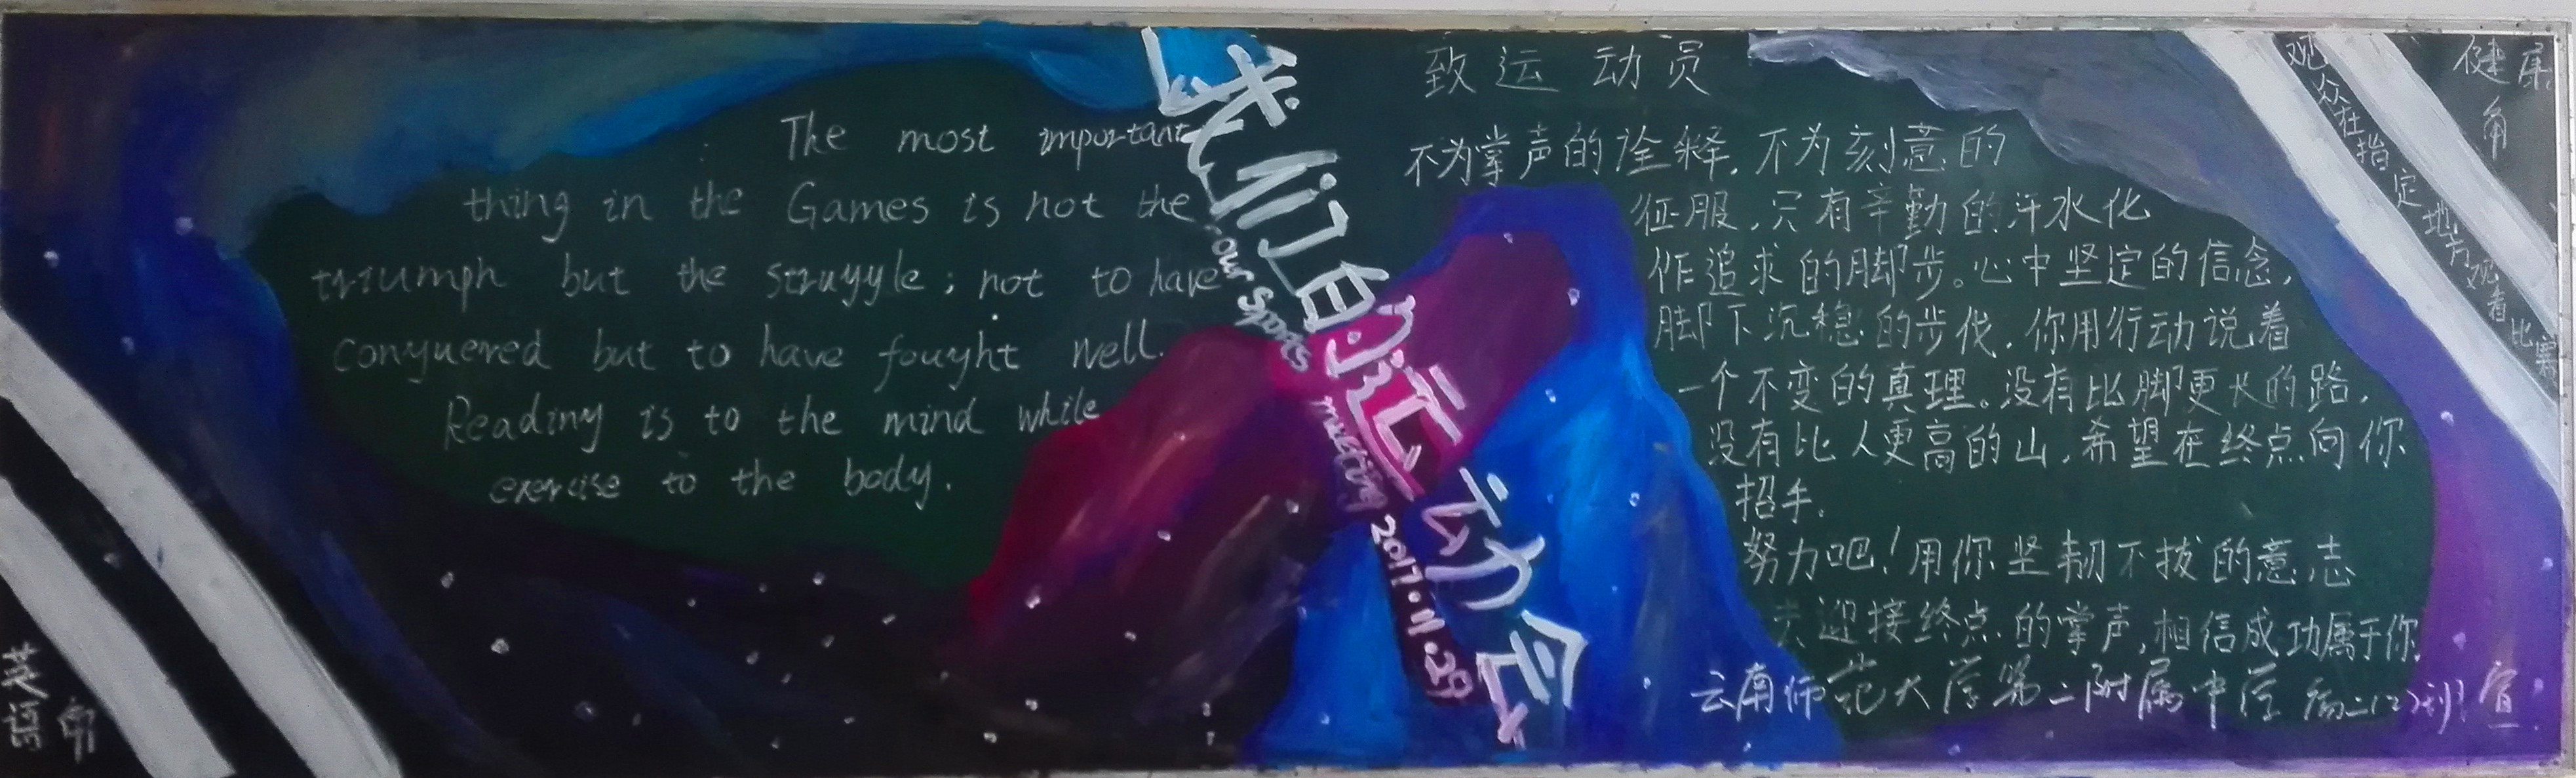 The most important
thing in the Games is not the
triumph but the struggle; not to have
conquered but to have fought well.
Reading is to the mind while
exercise to the body.
英语角
我们的运动会
our sports meeting 2017.11.29
致运动员
不为掌声的诠释,不为刻意的
征服,只有辛勤的汗水化
作追求的脚步。心中坚定的信念,
脚下沉稳的步伐,你用行动说着
一个不变的真理。没有比脚更长的路,
没有比人更高的山,希望在终点向你
招手。
努力吧!用你坚韧不拔的意志
去迎接终点的掌声,相信成功属于你
云南师范大学第二附属中学 高二(2)班 宣
观众在指定地方观看比赛
健康角